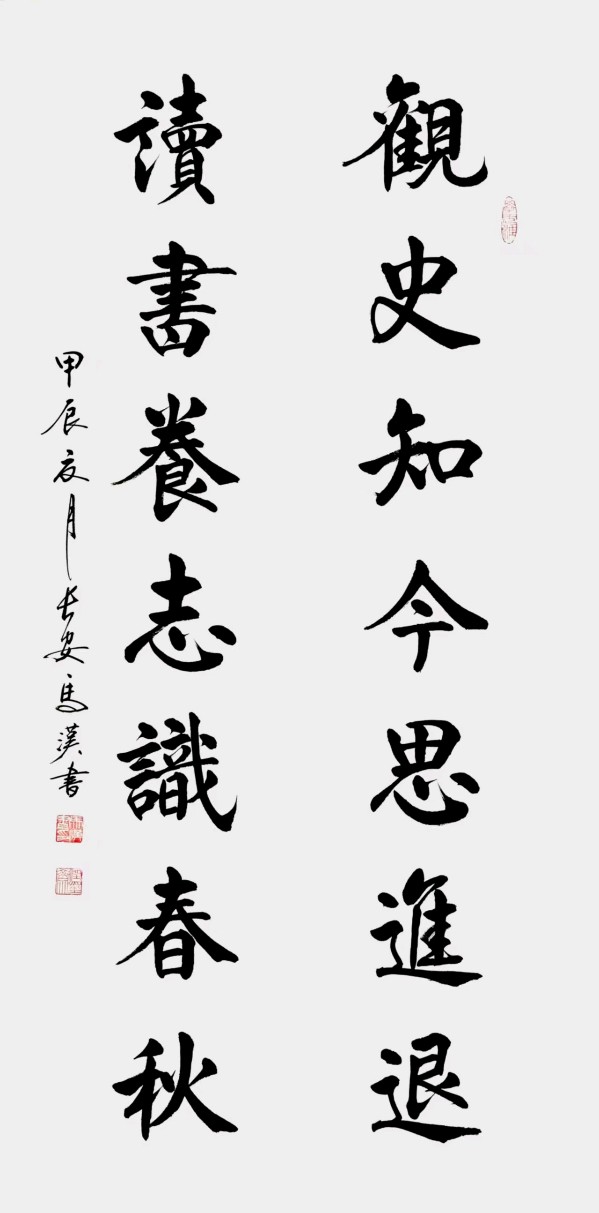 觀史知今思進退
讀書養志識春秋
甲辰夏月長安馬漢書